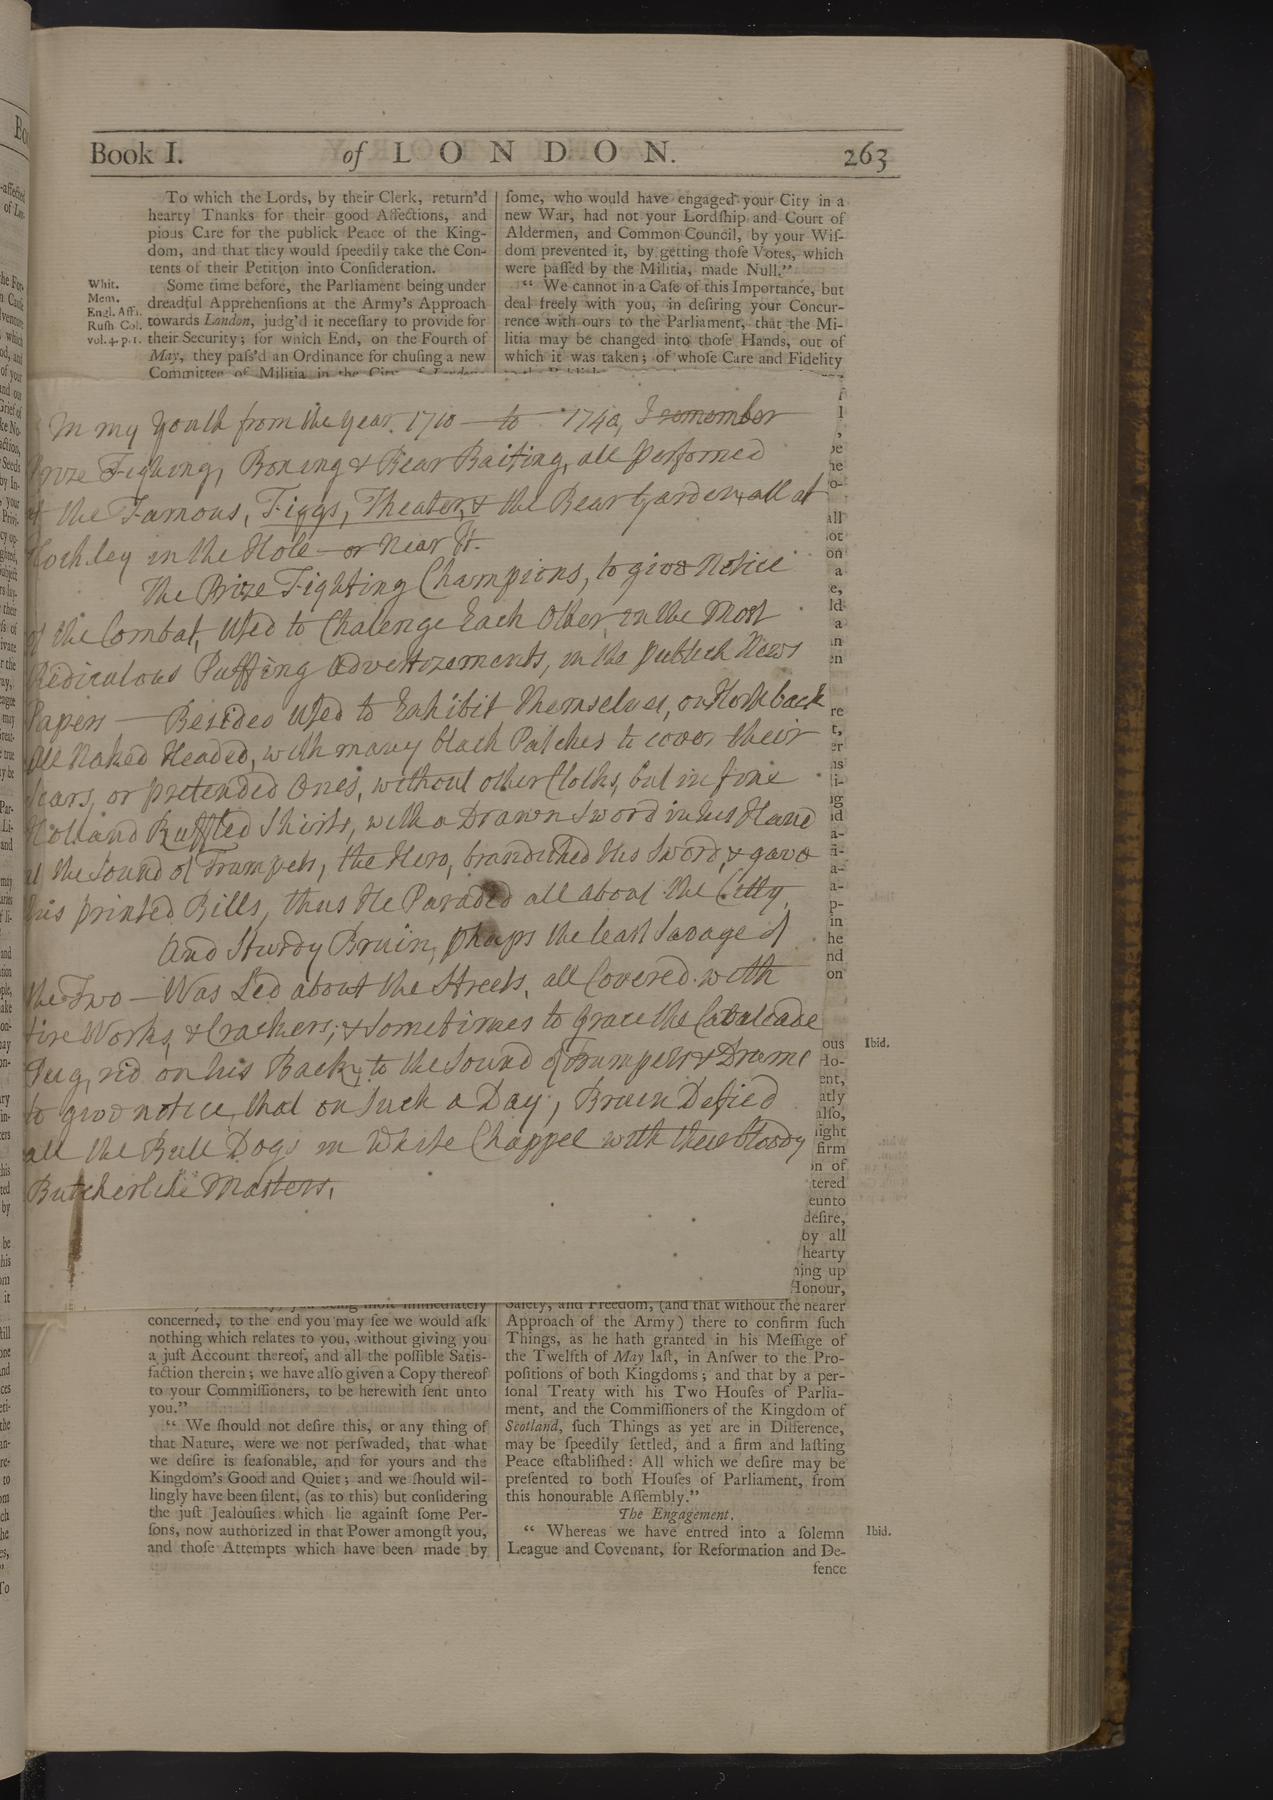 Book I.
of LONDON.
263
To which the Lords, by their Clerk, return'd
hearty Thanks for their good Affections, and
pious Care for the publick Peace of the King-
dom, and that they would ſpeedily take the Con-
tents of their Petition into Conſideration.
Some time before, the Parliament being under
dreadful Apprehenſions at the Army's Approach
towards London, judg'd it neceſſary to provide for
their Security; for which End, on the Fourth of
May, they paſs'd an Ordinance for chuſing a new
Committee of Militia in the City of London
Whit.
Mem.
Engl. Aff.
Ruſh Col.
vol. 4. p. 1.
ſome, who would have engaged your City in a
new War, had not your Lordſhip and Court of
Aldermen, and Common Council, by your Wiſ-
dom prevented it, by getting thoſe Votes, which
were paſſed by the Militia, made Null."
" We cannot in a Caſe of this Importance, but
deal freely with you, in deſiring your Concur-
rence with ours to the Parliament, that the Mi-
litia may be changed into thoſe Hands, out of
which it was taken; of whoſe Care and Fidelity
In my Youth from the Year 1710 — to 1740, I remember
Prize Fighing, Boxing & Bear Baiting, all Performed
at the Famous, Figgs, Theater, & the Bear Garden, all at
Hockley in the Hole — or Near It.
The Prize Fighting Champions, to give Notice
of the Combat, Used to Chalenge Each Other, in the Most
Rediculous Puffing Advertizements, in the publick News
Papers — Besides Used to Exhibit themselves, on Horsback
All Naked Headed, with many black Patches to cover their
Scars, or pretended Ones, without other Cloths, but in fine
Holland Ruffled Shirts, with a Drawn Sword in his Hand
at the Sound of Trumpets, the Hero, brandished His Sword, & gave
his printed Bills, thus He Paraded all about the Citty,
And Sturdy Bruin, phaps the least Savage of
the Two — Was Led about the Streets, all Covered with
fire Works, & Crackers; & Sometimes to grace the Cavalcade
Pug, rid on his Back, to the Sound of Trumpets & Drums
to give notice, that on Such a Day, Bruin Defied
all the Bull Dogs in White Chappel with their bloody
Butcherlike Masters,
ous
Ibid.
Ho-
ent,
atly
alſo,
light
firm
on of
tered
eunto
deſire,
by all
hearty
ning up
Honour,
concerned, to the end you may ſee we would aſk
nothing which relates to you, without giving you
a juſt Account thereof, and all the poſſible Satis-
faction therein; we have alſo given a Copy thereof
to your Commiſſioners, to be herewith ſent unto
you."
" We ſhould not deſire this, or any thing of
that Nature, were we not perſwaded, that what
we deſire is ſeaſonable, and for yours and the
Kingdom's Good and Quiet; and we ſhould wil-
lingly have been ſilent, (as to this) but conſidering
the juſt Jealouſies which lie againſt ſome Per-
ſons, now authorized in that Power amongſt you,
and thoſe Attempts which have been made by
Safety, and Freedom, (and that without the nearer
Approach of the Army) there to confirm ſuch
Things, as he hath granted in his Meſſage of
the Twelfth of May laſt, in Anſwer to the Pro-
poſitions of both Kingdoms; and that by a per-
ſonal Treaty with his Two Houſes of Parlia-
ment, and the Commiſſioners of the Kingdom of
Scotland, ſuch Things as yet are in Difference,
may be ſpeedily ſettled, and a firm and laſting
Peace eſtabliſhed: All which we deſire may be
preſented to both Houſes of Parliament, from
this honourable Aſſembly."
The Engagement.
" Whereas we have entred into a ſolemn
League and Covenant, for Reformation and De-
fence
Ibid.